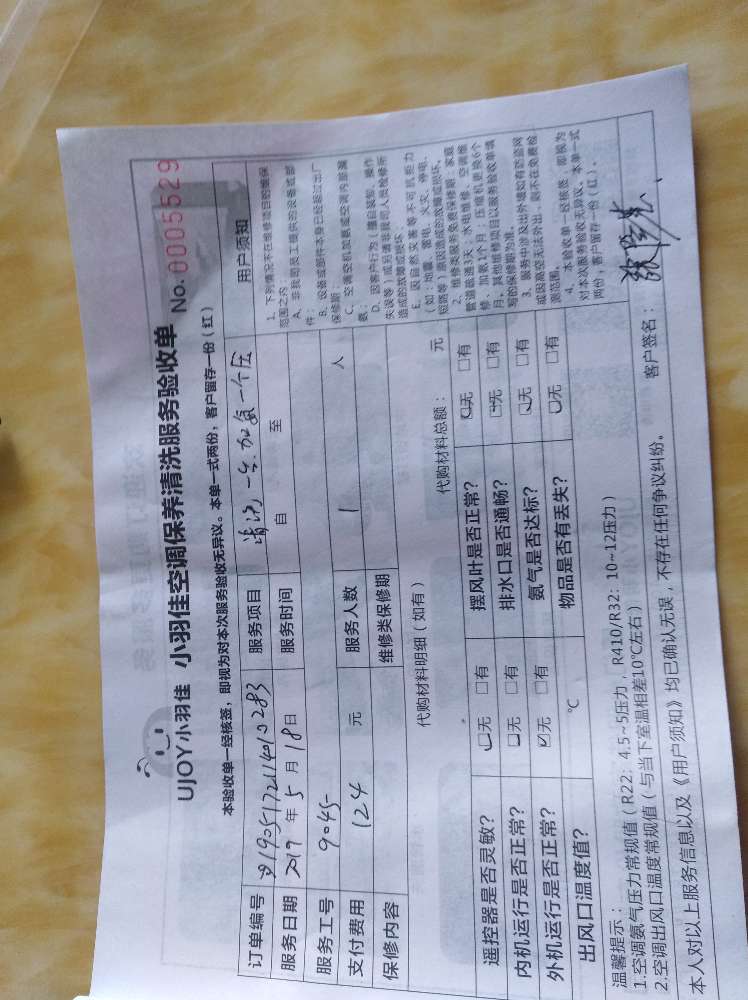 UJOY小羽佳 小羽佳空调保养清洗服务验收单 No.0005529
本验收单一经核签，即视为对本次服务验收无异议。本单一式两份，客户留存一份（红）
订单编号 服务项目 清洗一台.加氟一个压
服务日期 2019 年 5 月 18 日 服务时间 自 至
服务工号 9045
支付费用 124 元 服务人数 1 人
保修内容 维修类保修期
代购材料明细（如有） 代购材料总额： 元
遥控器是否灵敏？ ☑无 □有 摆风叶是否正常？ ☑无 □有
内机运行是否正常？ ☑无 □有 排水口是否通畅？ ☑无 □有
外机运行是否正常？ ☑无 □有 氨气是否达标？ ☑无 □有
出风口温度值？ ℃ 物品是否有丢失？ ☑无 □有
用户须知
1、下列情况不在维修项目的维保
范围之内
A、非我司员工提供的设备或部
件；
B、设备或部件本身已经超过出厂
保修期
C、空调空机加氨或空调内部漏
氨；
D、因客户行为（擅自装卸、操作
失误等）或另请非我司人员检修所
造成的故障或损坏；
E、因自然灾害等不可抗拒力
（如：地震、雷电、火灾、停电、
短路等）原因造成的故障或损坏。
2、维修类服务免费保修期：家庭
管道疏通3天；水电维修、空调维
修、加氨1个月；压缩机更换6个
月；其他维修项目以服务验收单填
写的保修期为准。
3、服务中涉及出外墙如有防盗网
或因高空无法外出，则不在免费检
测范围。
4、本验收单一经核签，即视为
对本次服务验收无异议。本单一式
两份，客户留存一份（红）。
温馨提示：
1.空调氨气压力常规值（R22：4.5~5压力，R410/R32：10~12压力）
2.空调出风口温度常规值（与当下室温相差10℃左右）
本人对以上服务信息以及《用户须知》均已确认无误，不存在任何争议纠纷。 客户签名：